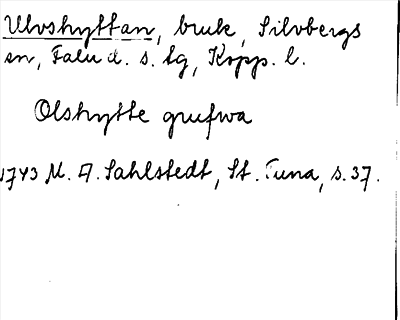 Ulvshyttan, bruk, Silvbergs
sn, Falu d. s. lg, Kopp. l.
Olshytte grufwa
1743 M. A. Sahlstedt, St. Tuna, s. 37.